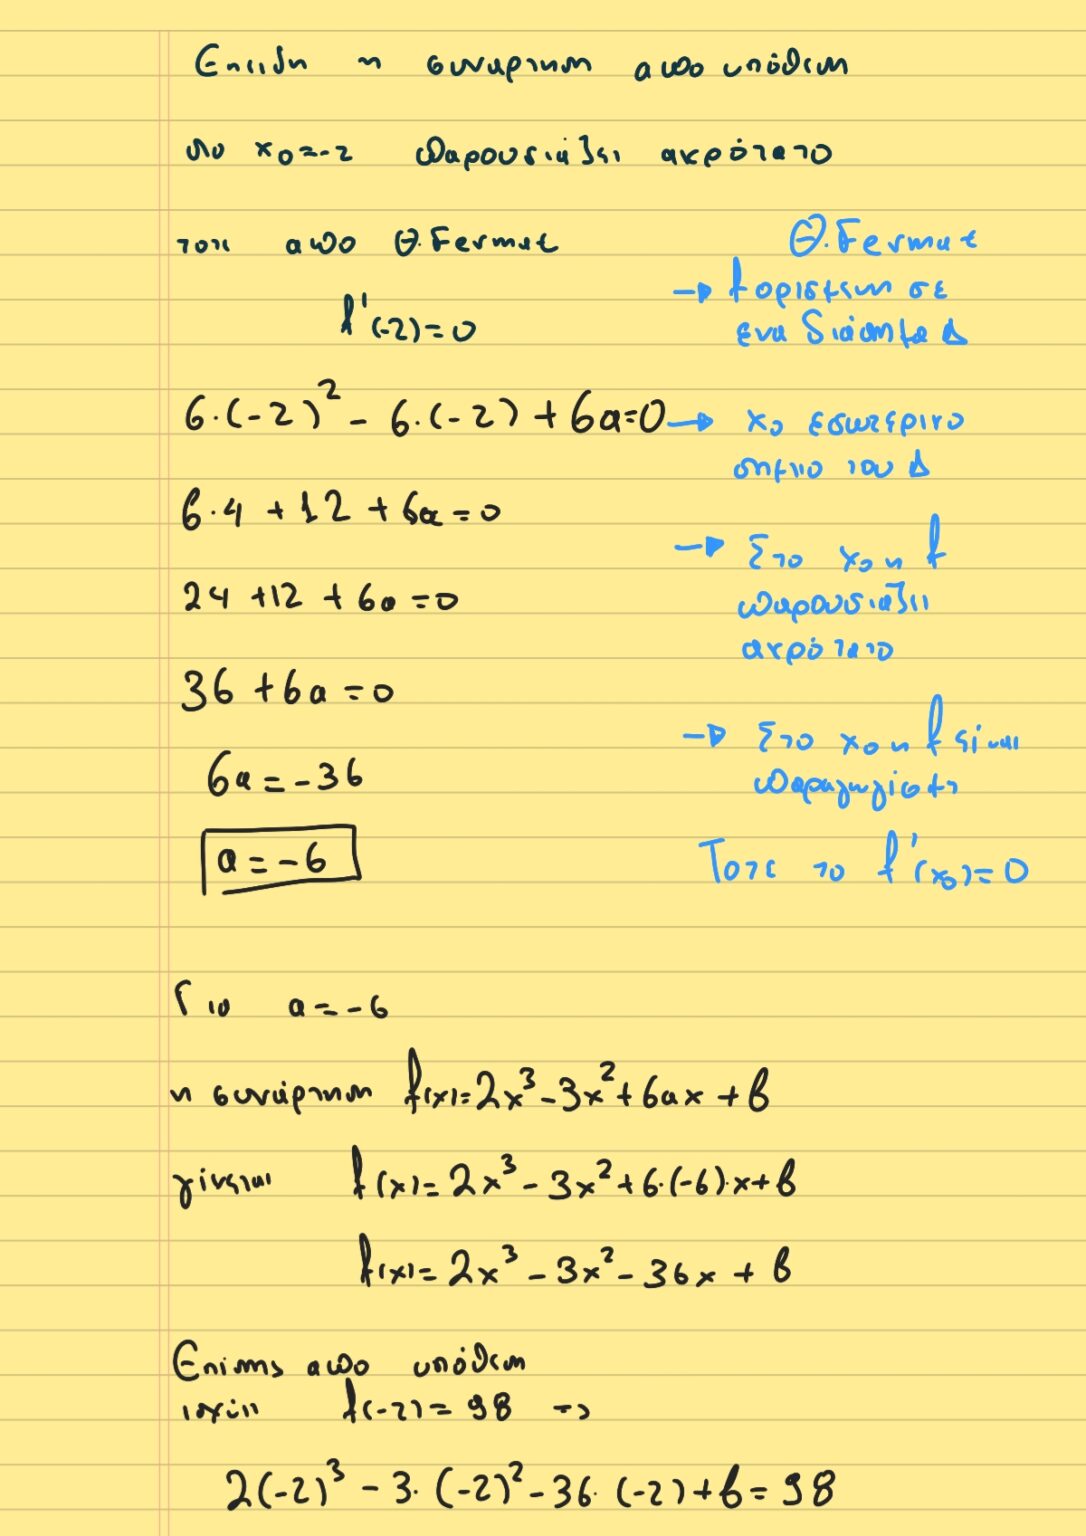 Επειδη η συναρτηση απο υπόθεση
στο x₀=-2 παρουσιάζει ακρότατο
τοτε απο Θ.Fermat
f'(-2)=0
6·(-2)² - 6·(-2) + 6α=0
6·4 + 12 + 6α=0
24 +12 + 6α=0
36 +6α=0
6α=-36
α=-6
Θ.Fermat
→ f ορισμενη σε
ενα διάστημα Δ
→ x₀ εσωτερικο
σημειο του Δ
→ Στο x₀ η f
παρουσιαζει
ακρότατο
→ Στο x₀ η f είναι
παραγωγίσιμη
Τοτε το f'(x₀)=0
Για α=-6
η συνάρτηση f(x)=2x³-3x²+6αx+β
γίνεται f(x)=2x³-3x²+6·(-6)·x+β
f(x)=2x³-3x²-36x+β
Επισης απο υπόθεση
ισχύει f(-2)=98 =>
2(-2)³ - 3·(-2)²-36·(-2)+β=98